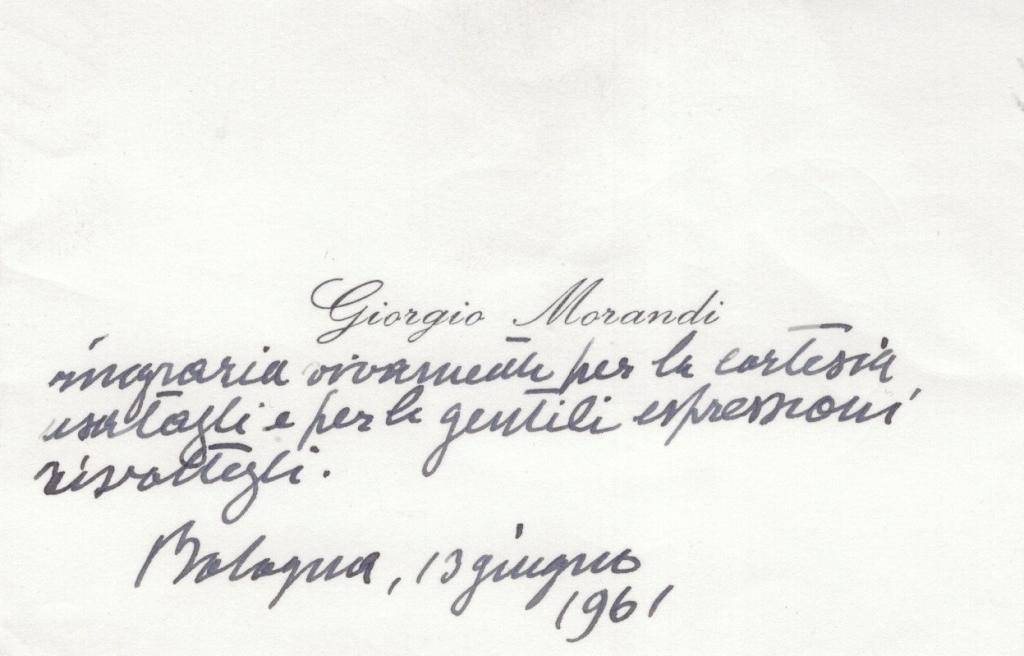 Giorgio Morandi
ringrazia vivamente per la cortesia
usatagli e per le gentili espressioni
rivoltegli.
Bologna, 13 giugno
1961